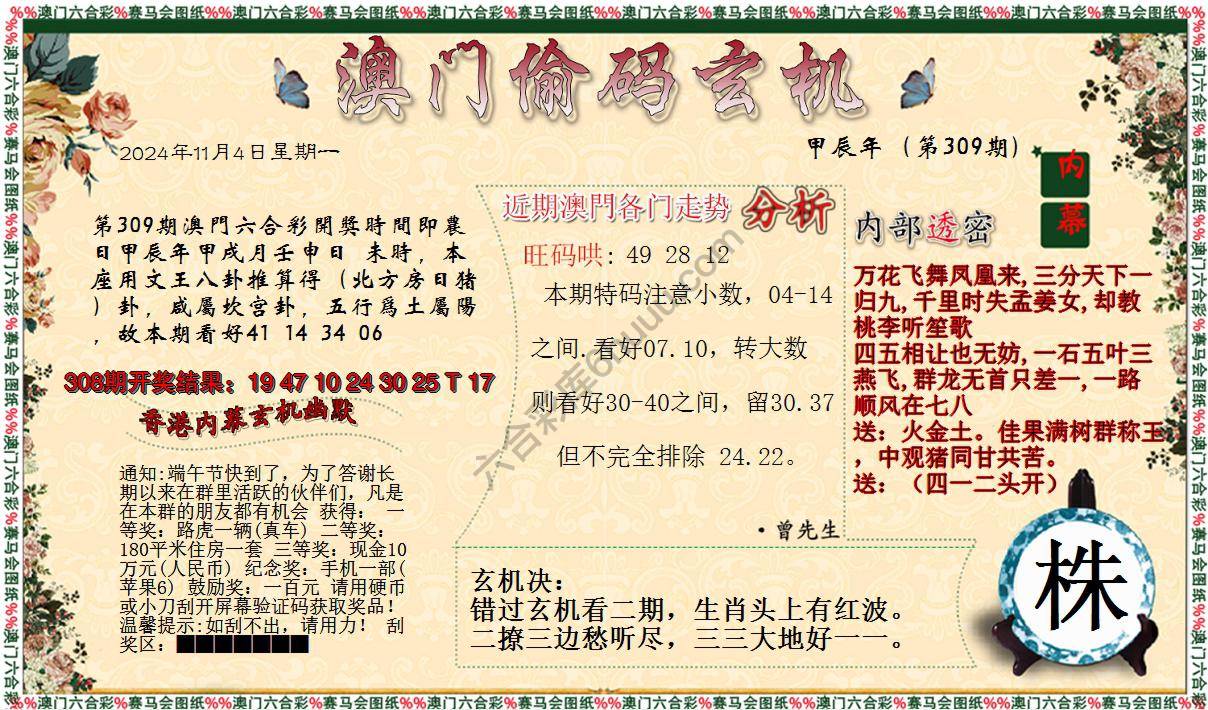 %%澳门六合彩%赛马会图纸%%澳门六合彩%赛马会图纸%%澳门六合彩%赛马会图纸%%澳门六合彩%赛马会图纸%%澳门六合彩%赛马会图纸%%澳门六合彩%赛马会图纸%%澳门六合彩%赛马会图纸%%
澳门偷码玄机
2024年11月4日星期一
甲辰年（第309期）
内
幕
第309期澳門六合彩開獎時間即農
日甲辰年甲戌月壬申日 未時，本
座用文王八卦推算得（北方房日猪
）卦，咸屬坎宫卦，五行爲土屬陽
，故本期看好41 14 34 06
308期开奖结果：19 47 10 24 30 25 T 17
香港内幕玄机幽默
通知:端午节快到了，为了答谢长
期以来在群里活跃的伙伴们，凡是
在本群的朋友都有机会 获得： 一
等奖：路虎一辆(真车) 二等奖：
180平米住房一套 三等奖：现金10
万元(人民币) 纪念奖：手机一部(
苹果6) 鼓励奖：一百元 请用硬币
或小刀刮开屏幕验证码获取奖品！
温馨提示:如刮不出，请用力！ 刮
奖区：■■■■■■■
近期澳門各门走势 分析
旺码哄: 49 28 12
本期特码注意小数，04-14
之间.看好07.10，转大数
则看好30-40之间，留30.37
但不完全排除 24.22。
·曾先生
内部透密
万花飞舞凤凰来,三分天下一
归九,千里时失孟姜女,却教
桃李听笙歌
四五相让也无妨,一石五叶三
燕飞,群龙无首只差一,一路
顺风在七八
送：火金土。佳果满树群称王
，中观猪同甘共苦。
送：（四一二头开）
玄机决：
错过玄机看二期，生肖头上有红波。
二撩三边愁听尽，三三大地好一一。
株
%%澳门六合彩%赛马会图纸%%澳门六合彩%赛马会图纸%%澳门六合彩%赛马会图纸%%澳门六合彩%赛马会图纸%%澳门六合彩%赛马会图纸%%澳门六合彩%赛马会图纸%%澳门六合彩%赛马会图纸%%